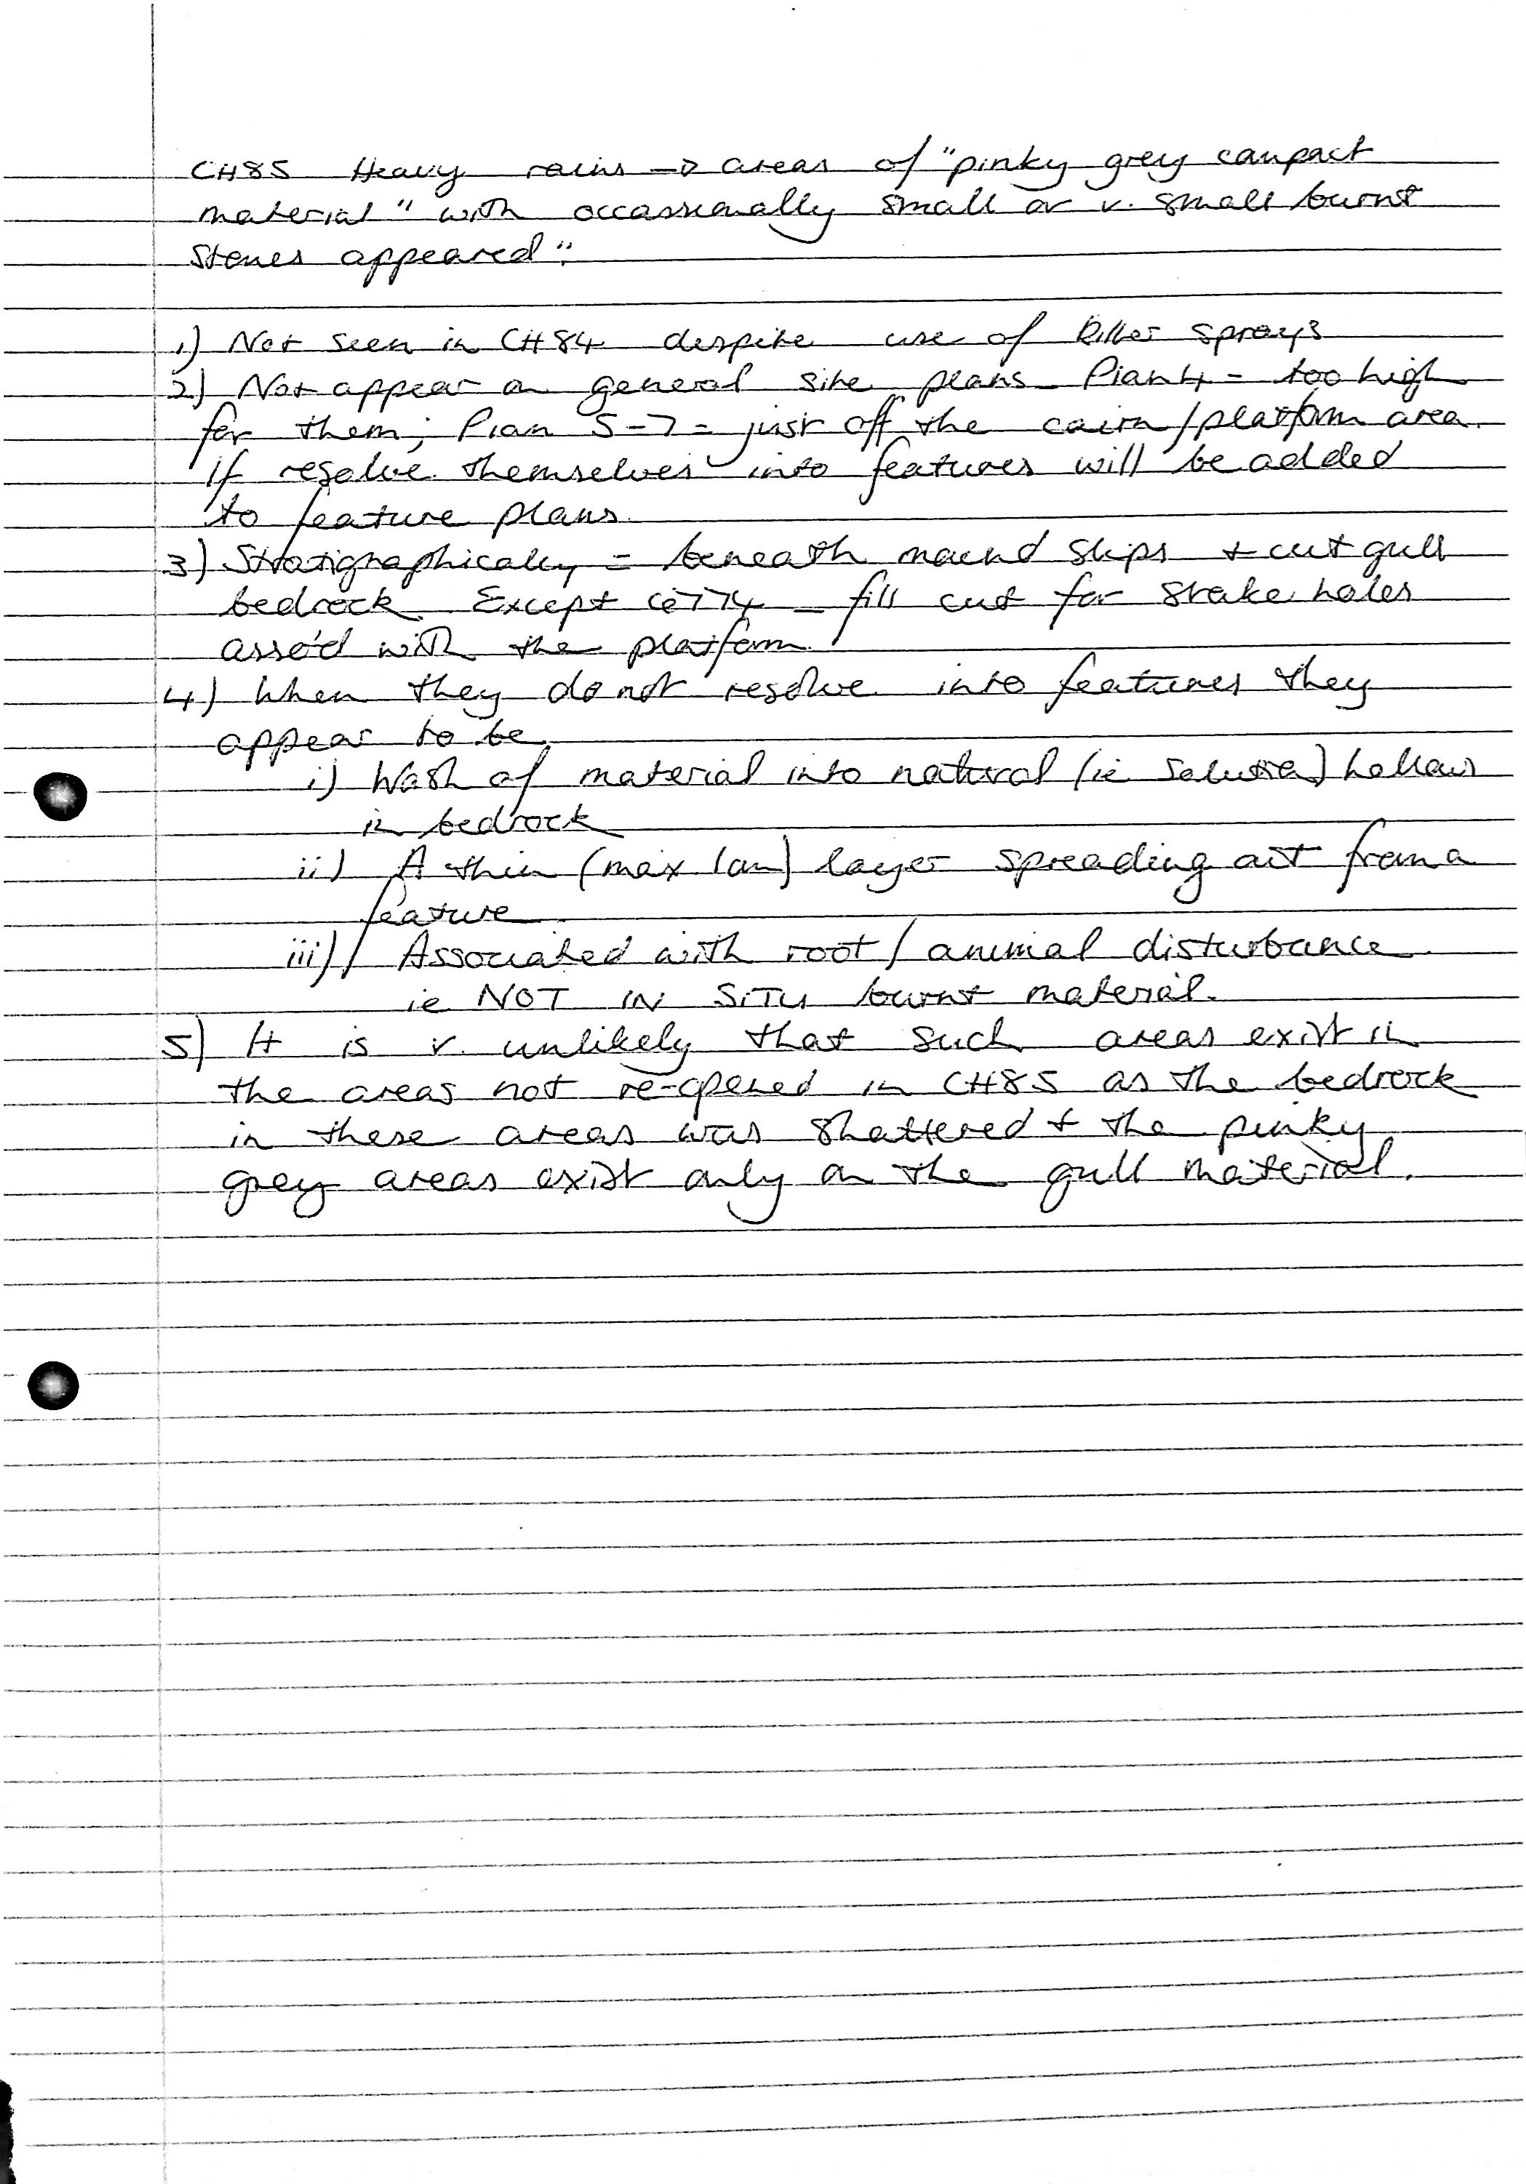 CH85 Heavy rains → areas of "pinky grey compact
material" with occassionally small or v. small burnt
stones appeared".
1) Not seen in CH84 despite use of killer sprays
2) Not appear on general site plans. Plan 4 = too high
for them; Plan 5-7 = just off the cairn/platform area.
If resolve themselves into features will be added
to feature plans.
3) Stratigraphically = beneath mound slips + cut gull
bedrock. Except 774 - fill cut for stake holes
asso'd with the platform.
4) When they do not resolve into features they
appear to be
i) Wash of material into natural (ie solution) hollows
in bedrock
ii) A thin (max 1cm) layer spreading out from a
feature.
iii) Associated with root/animal disturbance.
ie NOT IN SITU burnt material.
5) It is v. unlikely that such areas exist in
the areas not re-opened in CH85 as the bedrock
in these areas was shattered + the pinky
grey areas exist only on the gull material.